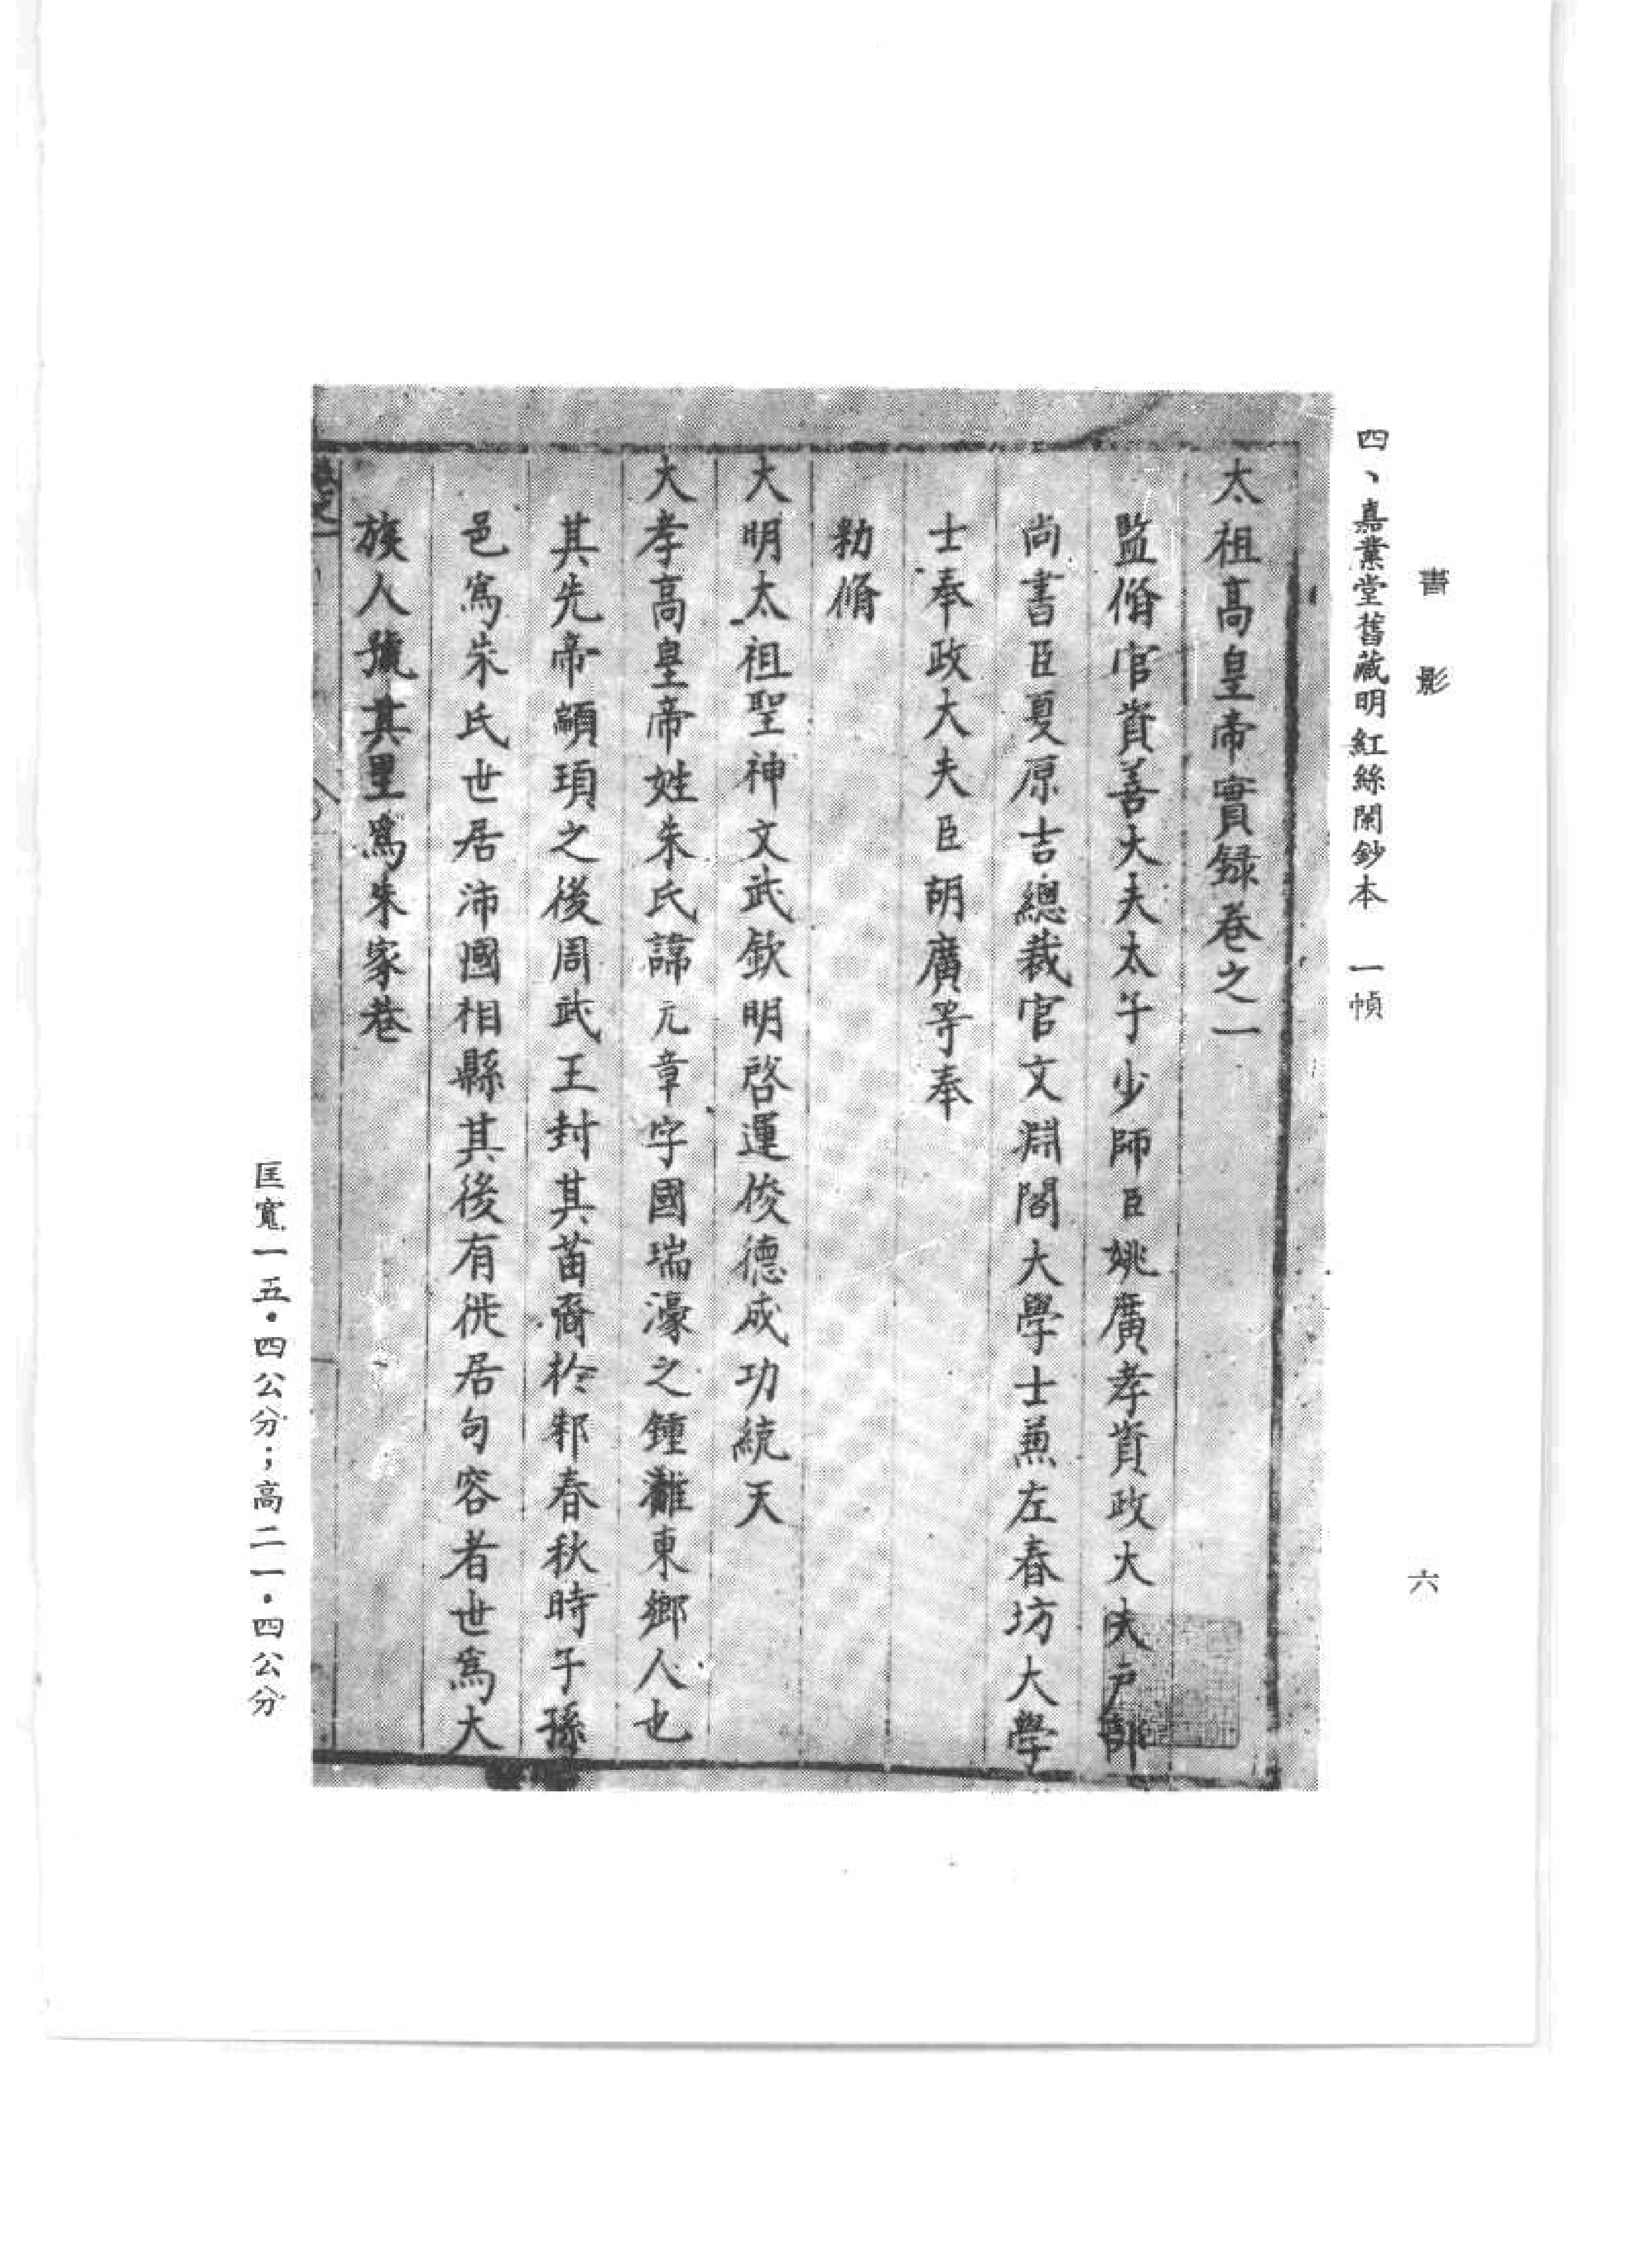 書影
六
四、嘉業堂舊藏明紅絲闌鈔本 一幀
太祖高皇帝實録卷之一
監脩官資善大夫太子少師臣姚廣孝資政大夫户部
尚書臣夏原吉總裁官文淵閣大學士兼左春坊大學
士奉政大夫臣胡廣等奉
勑脩
大明太祖聖神文武欽明啓運俊德成功統天
大孝高皇帝姓朱氏諱元章字國瑞濠之鍾離東鄉人也
其先帝顓頊之後周武王封其苗裔於邾春秋時子孫
邑爲朱氏世居沛國相縣其後有徙居句容者世爲大
族人號其里爲朱家巷
匡寬一五·四公分;高二一·四公分